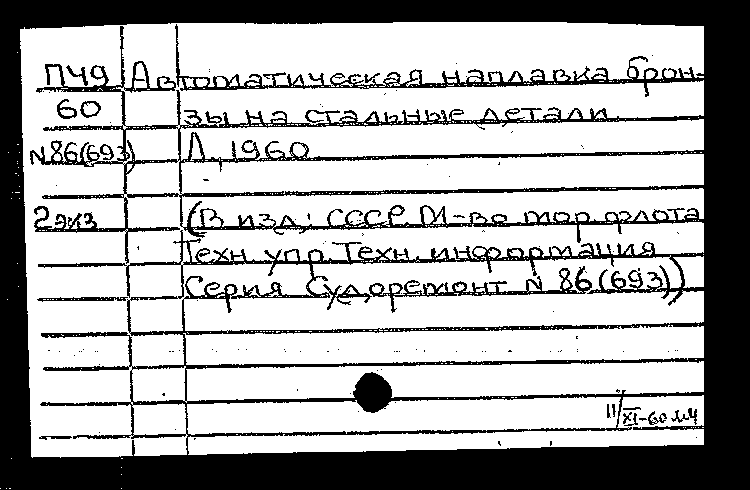 П49 Автоматическая наплавка брон-
60 зы на стальные детали.
N86(693) Л., 1960
2 экз (В изд.: СССР. М-во мор. флота
Техн. упр. Техн. информация
Серия Судоремонт N 86(693))
11/XI-60